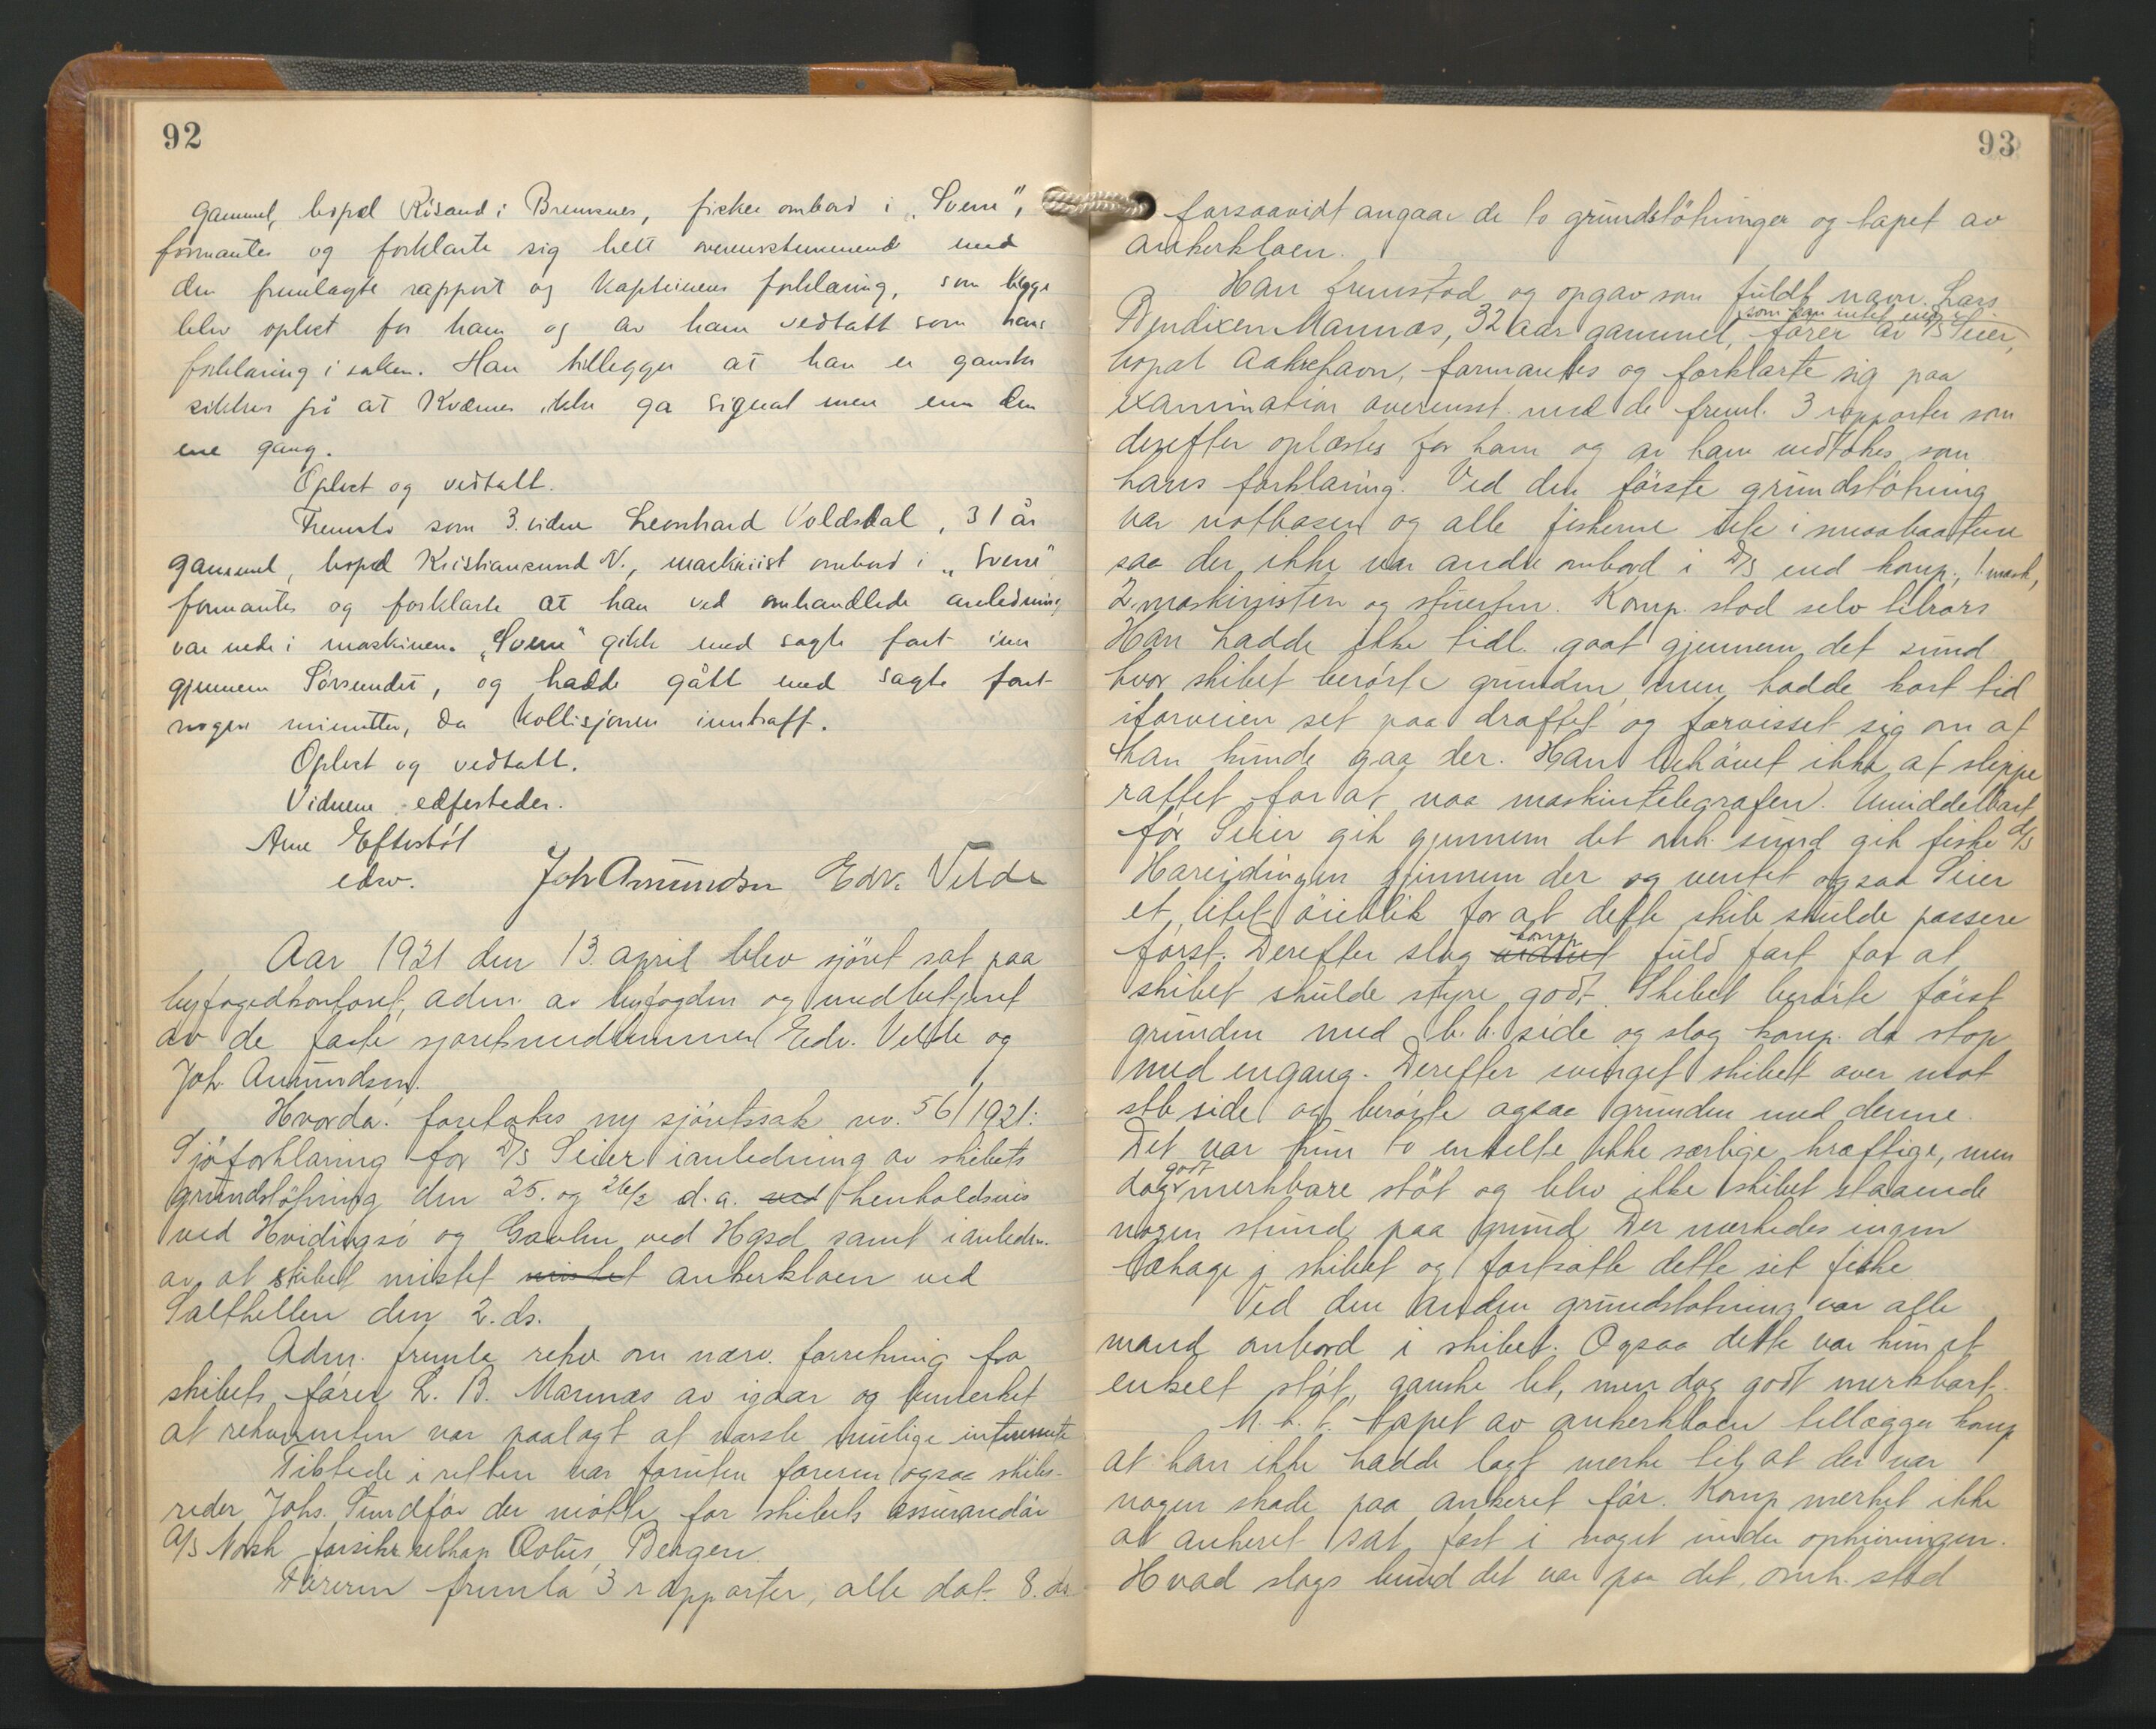 92
gammel, bopæl Risand i Bremsnes, fisker ombord i „Sverre",
formantes og forklarte sig helt overensstemmende med
den fremlagte rapport og kapteinens forklaring, som begge
blev oplest for ham og av ham vedtatt som hans
forklaring i saken. Han tillegger at han er ganske
sikker på at Kværnes ikke ga signal mer enn den
ene gang.
Oplest og vedtatt.
Fremsto som 3. vidne Leonhard Voldsdal, 31 år
gammel, bopæl Kristiansund N., maskinist ombord i „Sverre"
formantes og forklarte at han ved omhandlede anledning
var nede i maskinen. „Sverre" gikk med sagte fart inn
gjennem Sørsundet, og hadde gått med sagte fart
nogen minutter, da kollisjonen inntraff.
Oplest og vedtatt.
Vidnene edfestedes.
Arne Eftestøl
edsv.
Joh Amundsen Edv. Velde
Aar 1921 den 13. april blev sjöret sat paa
byfogedkontoret, adm. av byfogden og medbetjent
av de faste sjøretsmedlemmer Edv. Velde og
Joh. Amundsen.
Hvorda: foretokes ny sjöretssak nr. 56/1921:
Sjöforklaring for D/S Seier i anledning av skibets
grundstötning den 25. og 26/2 d.a. ved henholdsvis
ved Hvidingsö og Gavlen ved Hgsd samt i anledn.
av at skibet mistet mistet ankerkloen ved
Salthellen den 2. ds.
Adm. fremla rekv. om nærv. forretning fra
skibets förer L. B. Mannes av igaar og bemerket
at rekvirenten var paalagt at varsle mulige interesserte
Tilstede i retten var foruten föreren ogsaa skibs-
reder Johs. Sundför der mötte for skibets assurandör
A/S Norsk forsikr.selskap Æolus, Bergen.
Föreren fremla 3 rapporter, alle dat. 8. ds.
93
forsaavidt angaar de to grundstötninger og tapet av
ankerkloen.
Han fremstod og opgav som fuldt navn: Lars
som kan intet
Bendixen Mannes, 32 aar gammel, förer av D/S Seier,
bopæl Aakrehavn, formantes og forklarte sig paa
examination overensst. med de freml. 3 rapporter som
derefter oplæstes for ham og av ham vedtokes som
hans forklaring. Ved den förste grundstötning
var notbasen og alle fiskerne ute i smaabaatene
saa der ikke var andre ombord i D/S end komp., 1 mask,
2. maskinisten og stuerten. Komp. stod selv tilrors
Han hadde ikke tidl. gaat gjennem det sund
hvor skibet berörte grunden, men hadde kort tid
iforveien set paa draftet og forvisset sig om at
han kunde gaa der. Han behövet ikke at slippe
rattet for at naa maskintelegrafen. Umiddelbart
för Seier gik gjennem det omh. sund gik fiske D/S
Hareidingen gjennem der og ventet ogsaa Seier
et litet öieblik for at dette skib skulde passere
först. Derefter slog vidnet komp. fuld fart for at
skibet skulde styre godt. Skibet berörte först
grunden med b.b. side og slog komp. da stop
med engang. Derefter svinget skibet over mot
stb side og berörte ogsaa grunden med denne.
Det var kun to enkelte ikke særlige kræftige, men
dog godt merkbare stöt og blev ikke skibet staaende
nogen stund paa grund. Der merkedes ingen
lækage i skibet og fortsatte dette sit fiske.
Ved den anden grundstötning var alle
mand ombord i skibet. Ogsaa dette var kun et
enkelt stöt, ganske let, men dog godt merkbart.
M.h.t. tapet av ankerkloen tillægger komp
at han ikke hadde lagt merke til at der var
nogen skade paa ankeret för. Komp merket ikke
at ankeret sat fast i noget under ophivningen.
Hvad slags bund det var paa det omh. sted